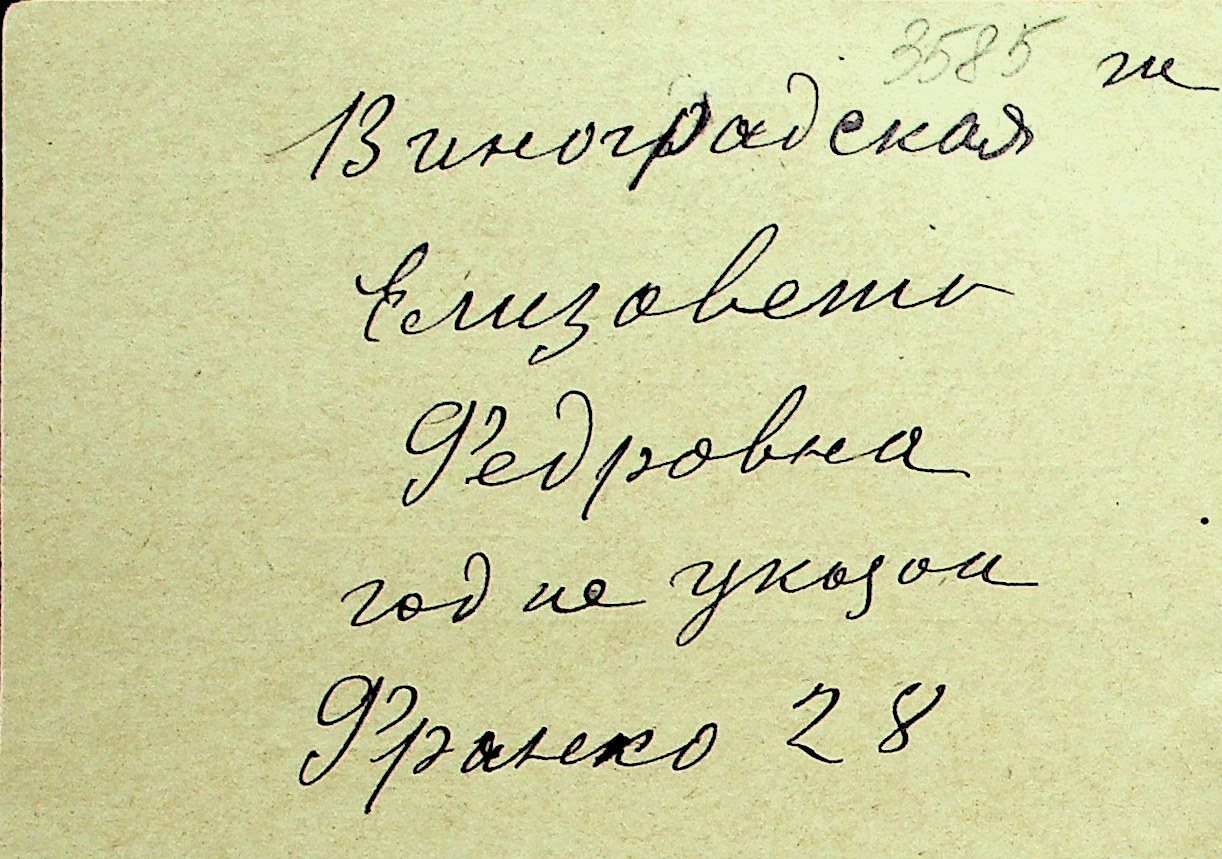 3585 ж
Виноградская
Елизовета
Федровна
год не указан
Франко 28